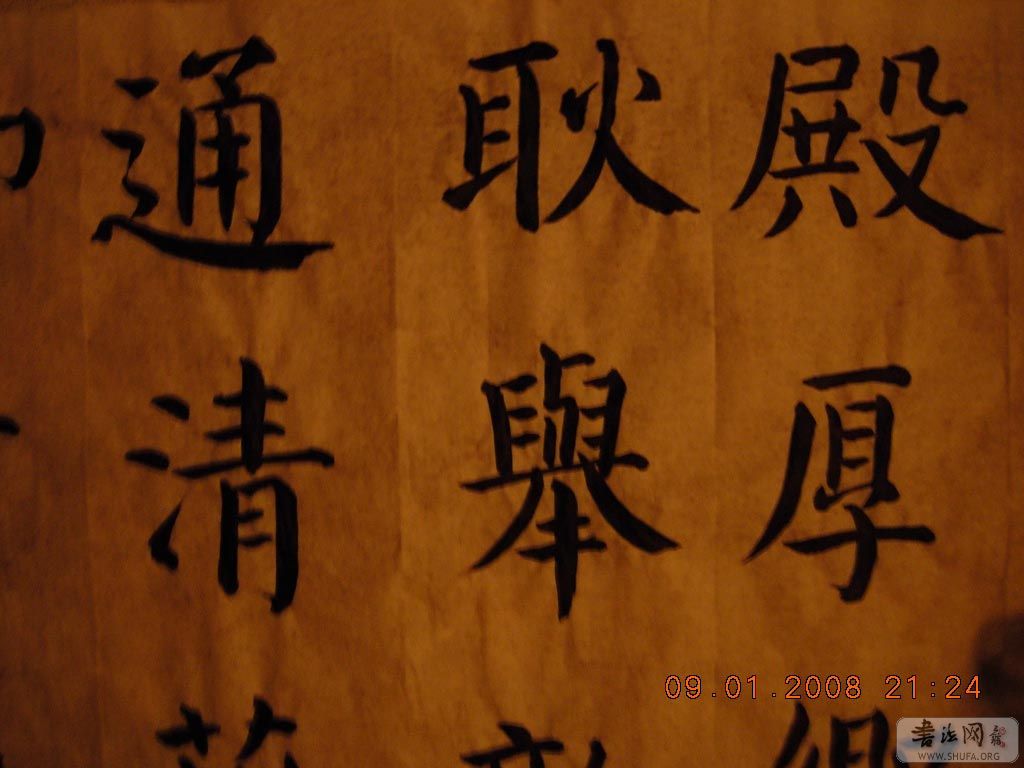 殿厚
耿舉
通清
09.01.2008 21:24
书法网
WWW.SHUFA.ORG